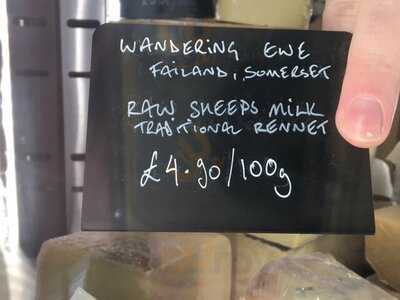 WANDERING EWE
FAILAND, SOMERSET
RAW SHEEPS MILK
TRADITIONAL RENNET
£4.90/100g